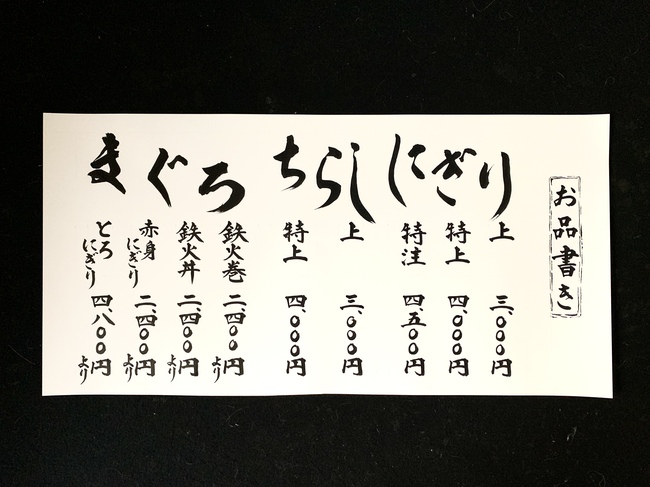 お品書き
にぎり
上 三、〇〇〇円
特上 四、〇〇〇円
特注 四、五〇〇円
ちらし
上 三、〇〇〇円
特上 四、〇〇〇円
まぐろ
鉄火巻 二、四〇〇円より
鉄火丼 二、四〇〇円より
赤身にぎり 二、四〇〇円より
とろにぎり 四、八〇〇円より